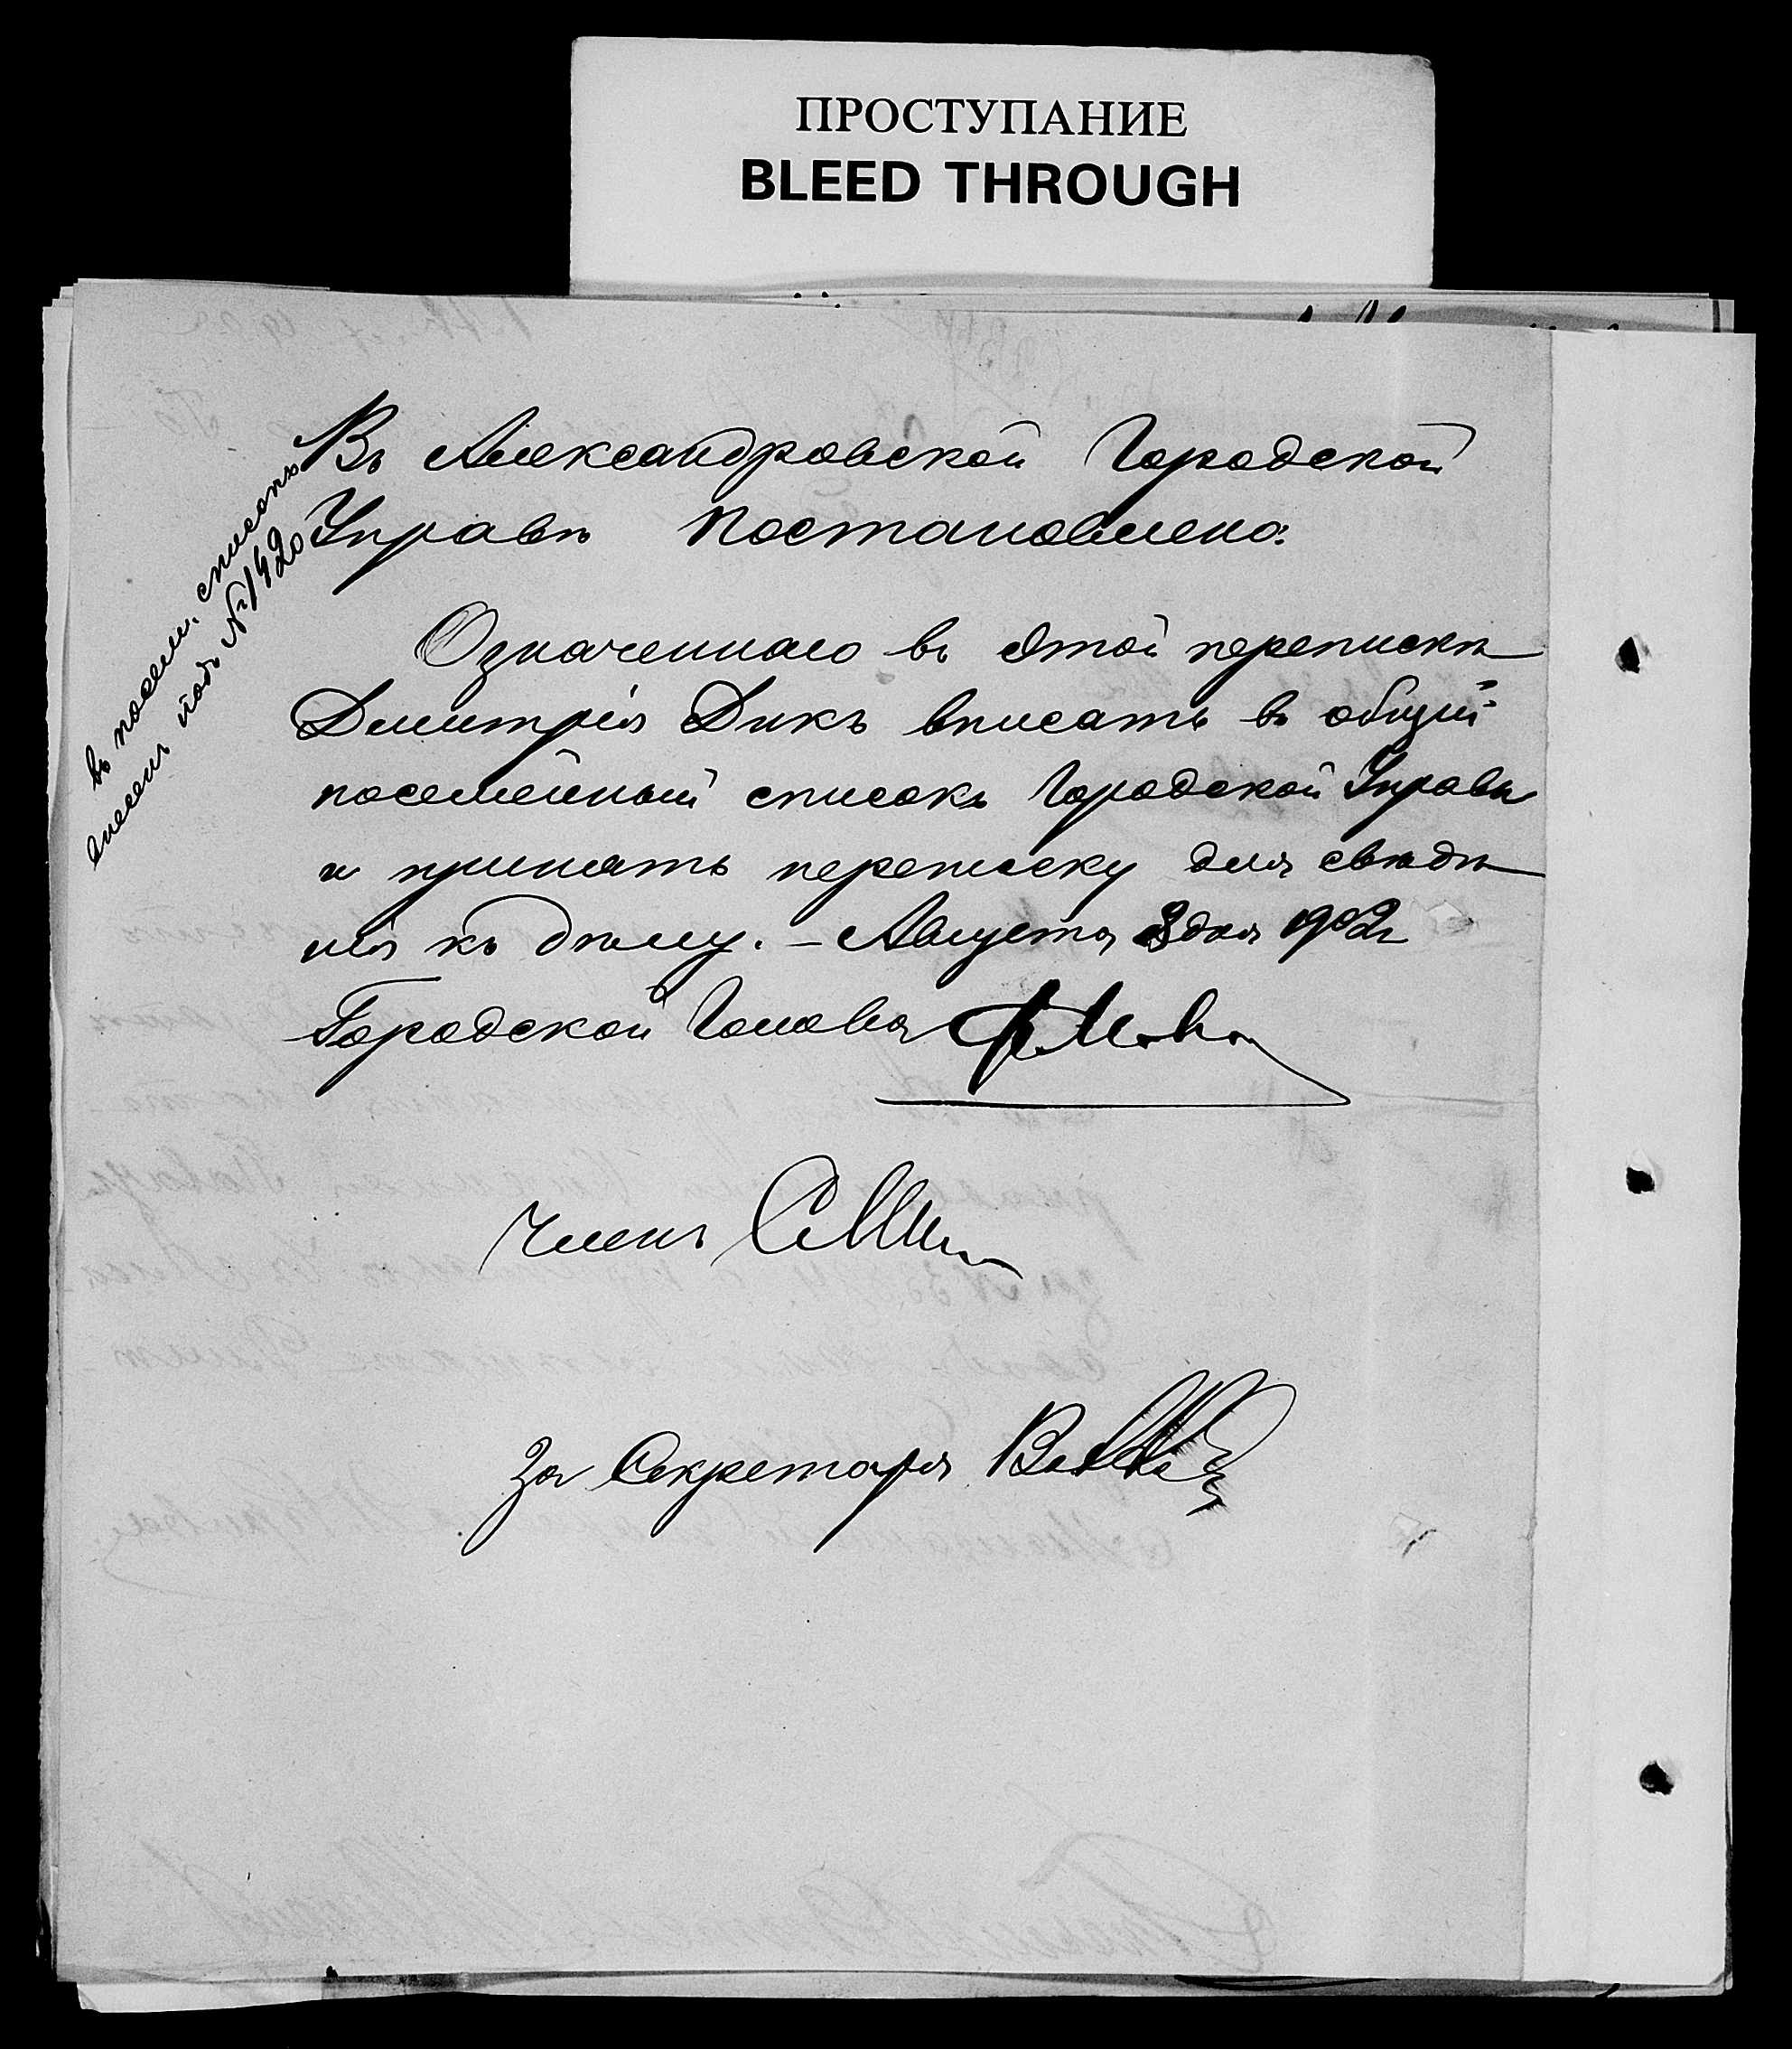 ПРОСТУПАНИЕ
BLEED THROUGH
Въ Александровской Городской
Управѣ постановлено:
Означеннаго въ этой перепискѣ
Димитрія Дикъ вписать въ общій
посемейный списокъ Городской Управы
и принять переписку для свѣдѣ
нія къ дѣлу. – Августа 3 дня 1902 г
Городской Голова
Членъ
За Секретаря
въ посем. списокъ
внесенъ подъ № 1420